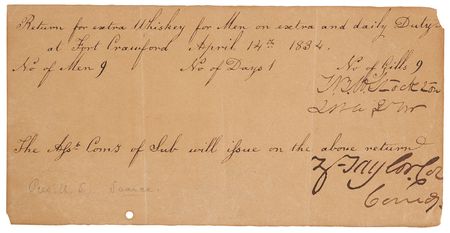 Return for extra Whiskey for Men on extra and daily Duty
at Fort Crawford April 14th 1834.
No of Men 9 No of Days 1 No of Gills 9
Asst Coms of Sub will issue on the above return
Z. Taylor Col
Comdg.